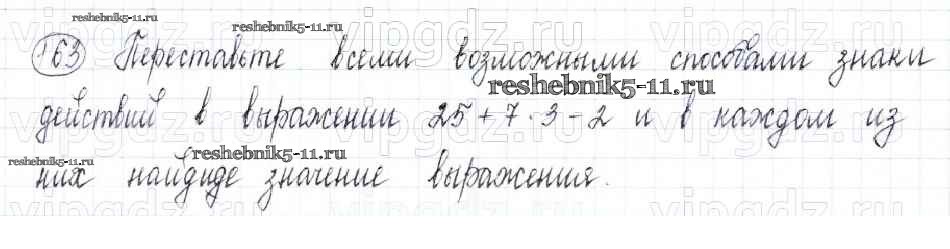 reshebnik5-11.ru
163 Переставьте всеми возможными способами знаки
reshebnik5-11.ru
действий в выражении 25 + 7 · 3 - 2 и в каждом из
reshebnik5-11.ru
reshebnik5-11.ru
них найдиде значение выражения.
vipgdz.ru vipgdz.ru vipgdz.ru vipgdz.ru